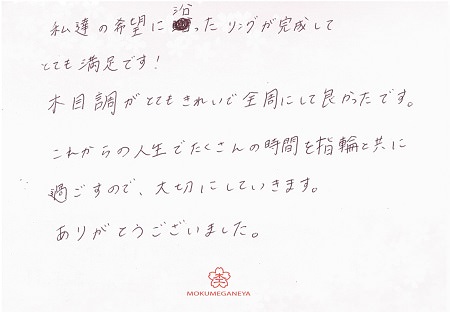 私達の希望に沿ったリングが完成して
とても満足です!
木目調がとてもきれいで全周にして良かったです。
これからの人生でたくさんの時間を指輪と共に
過ごすので、大切にしていきます。
ありがとうございました。
MOKUMEGANEYA